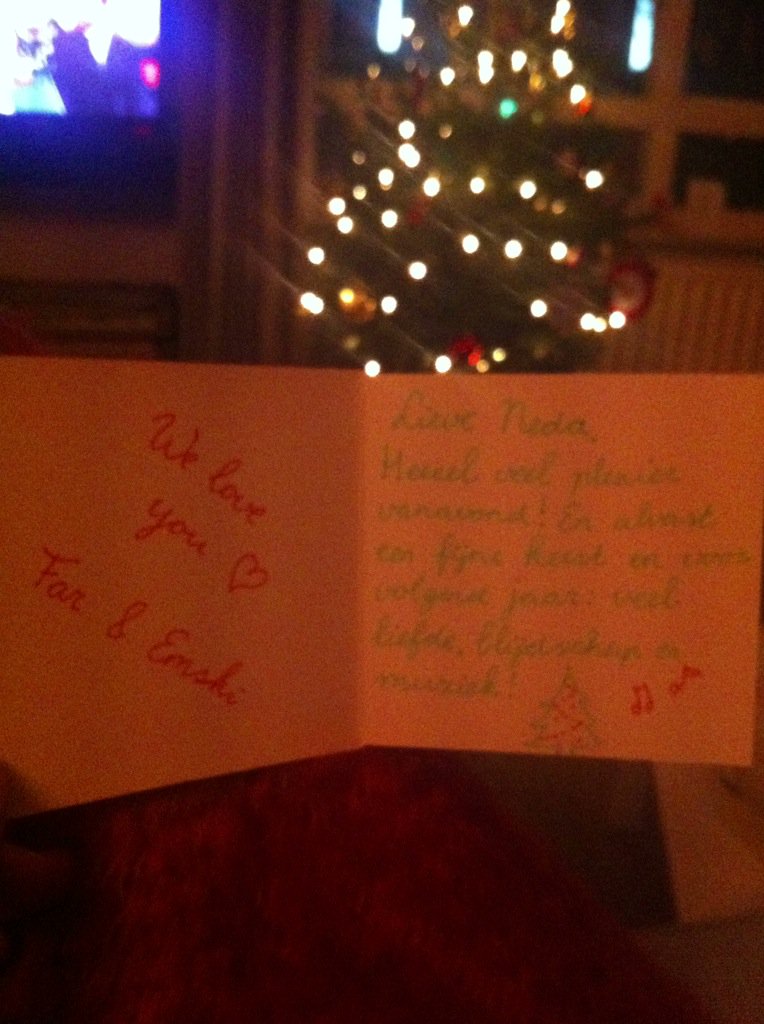 We love
you ♡
Far & Emski
Lieve Neda,
Heeel veel plezier
vanavond! En alvast
een fijne kerst en voor
volgend jaar: veel
liefde, blijdschap en
muziek!